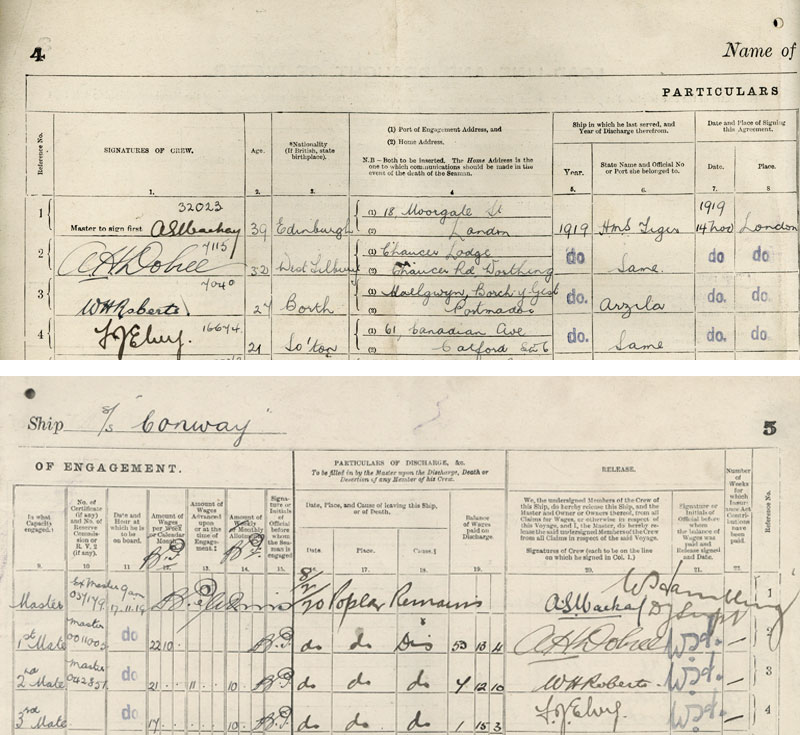 4
Name of
PARTICULARS
Reference No.
SIGNATURES OF CREW.
Age.
*Nationality (If British, state birthplace).
(1) Port of Engagement Address, and
(2) Home Address.
N.B – Both to be inserted. The Home Address is the one to which communications should be made in the event of the death of the Seaman.
Ship in which he last served, and Year of Discharge therefrom.
Year.
State Name and Official No or Port she belonged to.
Date and Place of Signing this Agreement.
Date.
Place.
1. 2. 3. 4 5. 6. 7. 8
1 32023 1919
Master to sign first A.S. Mackay 39 Edinburgh (1) 18, Moorgate St (2) London 1919 HMS Tiger 14 Nov London
2 A H Dobree 7115 32 West Tilbury (1) Chaucer Lodge (2) Chaucer Rd Worthing do Same. do do
3 W H Roberts 7040 27 Borth (1) Maelgwyn, Borth-y-Gest (2) Portmadoc do. Arzila do. do.
4 16674 21 So'ton (1) 61, Canadian Ave (2) Catford SE6 do. Same do. do.
Ship S/S "Conway" 5
OF ENGAGEMENT.
PARTICULARS OF DISCHARGE, &c.
To be filled in by the Master upon the Discharge, Death or Desertion of any Member of his Crew.
RELEASE.
In what Capacity engaged.†
No. of Certificate (if any) and No. of Reserve Commission or R. V. 2 (if any).
Date and Hour at which he is to be on board.
Amount of Wages per Week or Calendar Month.
Amount of Wages Advanced upon or at time of Engagement.‡
Amount of Weekly or Monthly Allotment.
Signature or Initials of Official before whom the Seaman is engaged
Date, Place, and Cause of leaving this Ship, or of Death.
Date
Place.
Cause.§
Balance of Wages paid on Discharge
We, the undersigned Members of the Crew of this Ship, do hereby release this Ship, and the Master and Owner or Owners thereof, from all Claims for Wages, or otherwise in respect of this Voyage, and I, the Master, do hereby release the undersigned Members of the Crew from all Claims in respect of the said Voyage.
Signatures of Crew (each to be on the line on which he signed in Col. 1.)
Signature or Initials of Official before whom the Balance of Wages was paid and Release signed and Date.
Number of Weeks for which Insurance Act Contributions have been paid.
Reference No.
9. 10 11 12. 13. 14. 15. 16. 17. 18. 19. 20. 21. 22.
Master Ex Master 037179 9am 17.11.19 8/2/20 Poplar Remains A.S. Mackay 1
1st Mate Master do 22 10 do do Dis 53 13 4 A H Dobree 2
2nd Mate Master 042851 do 21 11 10 do do do 7 12 10 W H Roberts 3
3rd Mate do 17 10 do do do 1 15 3 4